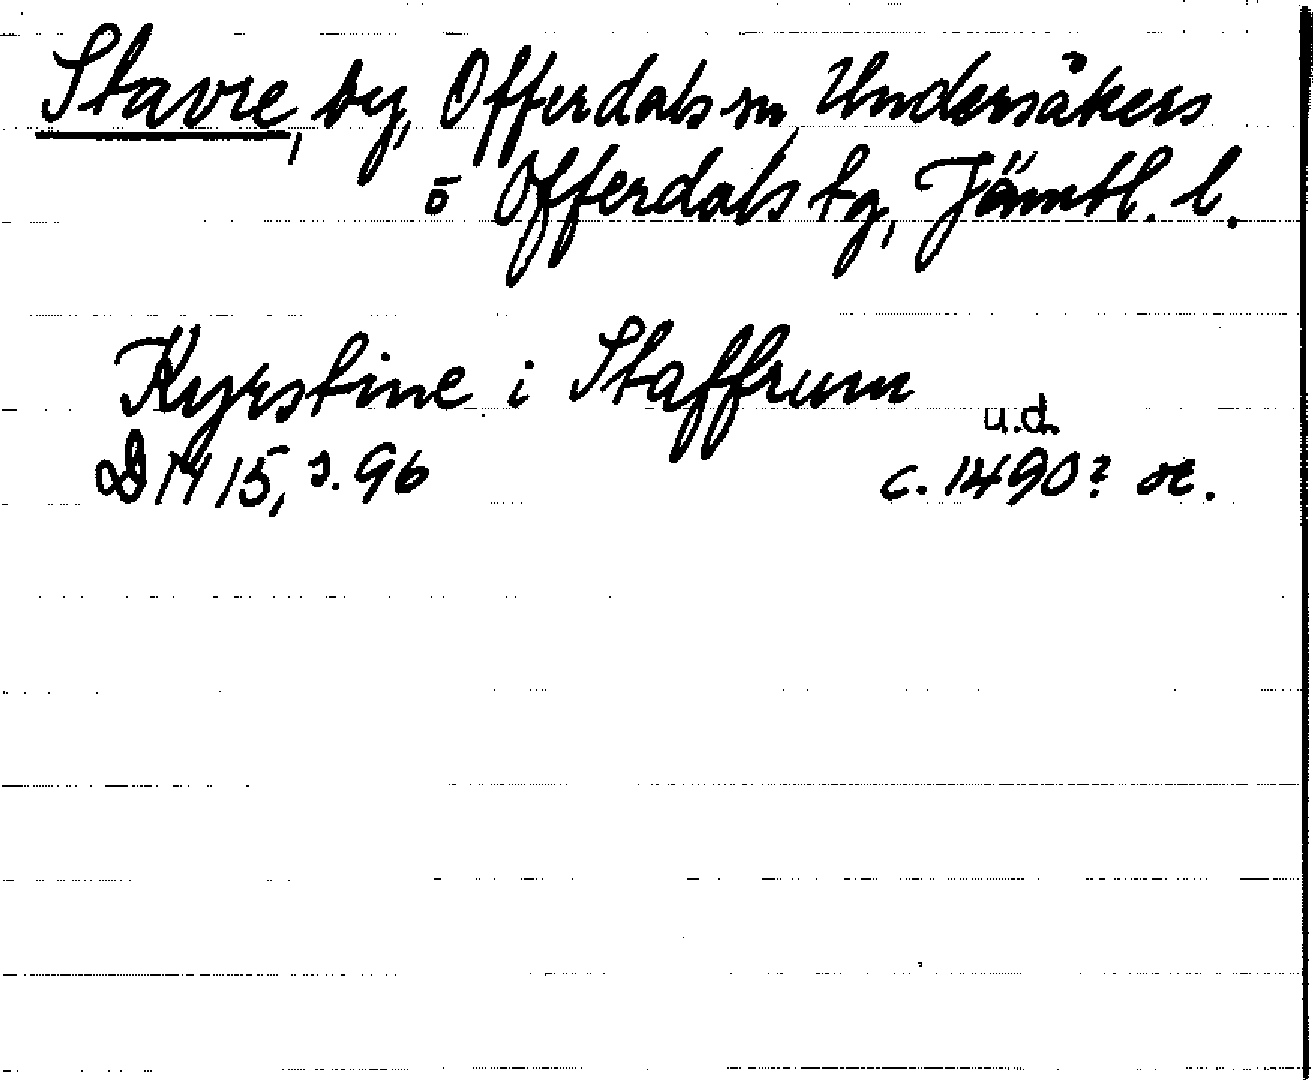 Stavre, by, Offerdals sn, Undersåkers
o Offerdals tg, Jämtl. l.
Kyrstine i Staffrum
u.d.
DN 15, s. 96 c. 1490? or.